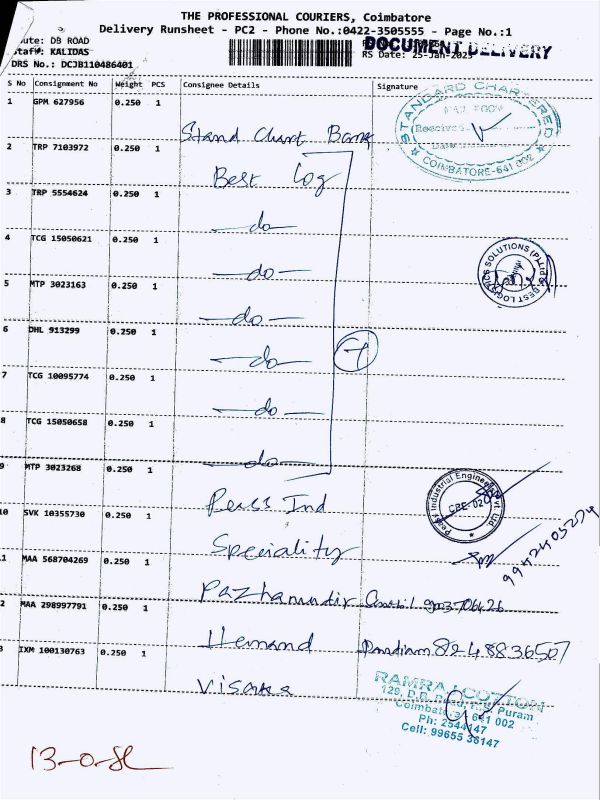 THE PROFESSIONAL COURIERS, Coimbatore
Delivery Runsheet - PC2 - Phone No.:0422-3505555 - Page No.:1
ute: DB ROAD
taff: KALIDAS
DRS No.: DCJB110486401
DOCUMENT DELIVERY
RS Date: 25-Jan-2025
S No Consignment No Weight PCS Consignee Details Signature
1 GPM 627956 0.250 1 Stand Chart Bank
STANDARD CHARTERED
COIMBATORE-641 002
2 TRP 7103972 0.250 1 Best Log
3 TRP 5554624 0.250 1 -do-
4 TCG 15050621 0.250 1 -do-
BEST LOGISTICS SOLUTIONS (P) Ltd
5 MTP 3023163 0.250 1 -do-
6 DHL 913299 0.250 1 -do-
7
7 TCG 10095774 0.250 1 -do-
8 TCG 15050658 0.250 1 -do-
9 MTP 3023268 0.250 1 Perss Ind
Industrial Engineers Pvt Ltd
CBE-02
10 SVK 10355730 0.250 1 Speciality
1 MAA 568704269 0.250 1 Pazhamudir
2 MAA 298997791 0.250 1 Hemand
IXM 100130763 0.250 1 Visaka
8248836507
RAMRAJ COTTON
129, D.B. Road, R.S. Puram
Coimbatore 641 002
Ph: 2544147
Cell: 99655 36147
13-0-SL